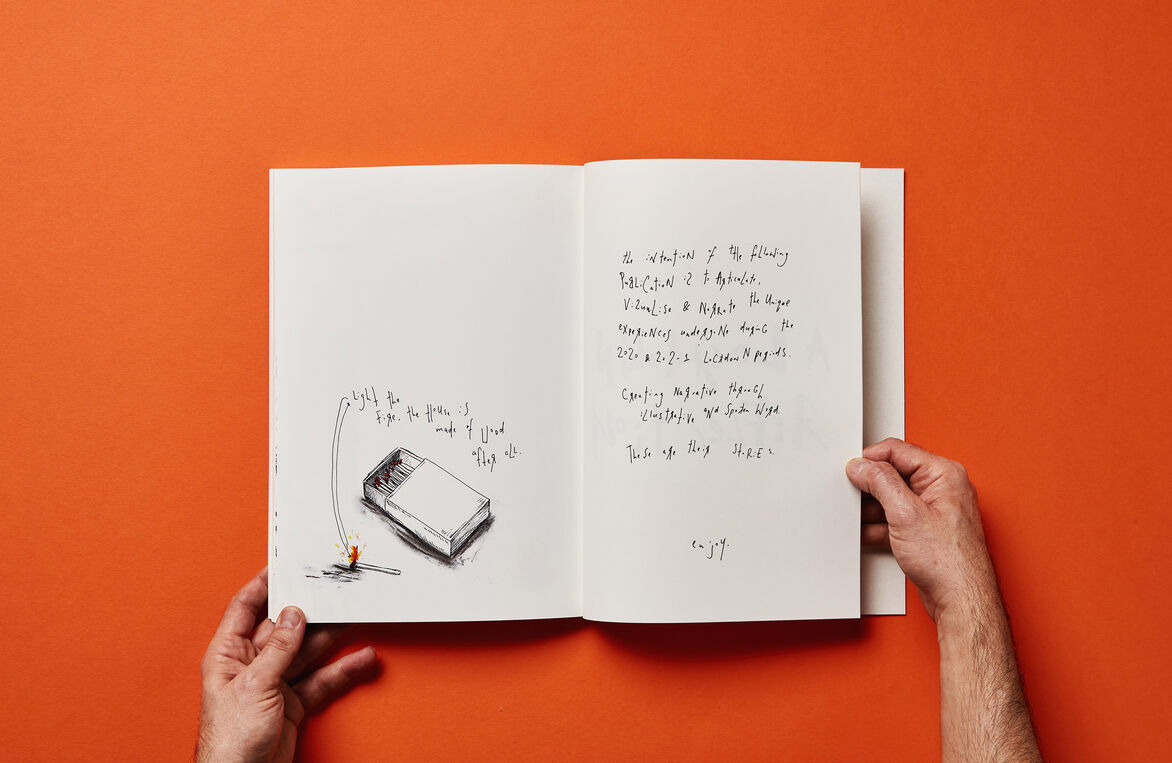 Light the
fire. the House is
made of Wood
after all.
the intention of the following
PUBLICATION is to Articulate,
Visualise & Narrate the Unique
experiences undergone during the
2020 & 202-1 Lockdown periods.
Creating Narrative through
illustrative and Spoken Word.
These are their Sto.R.E s.
enjoy.